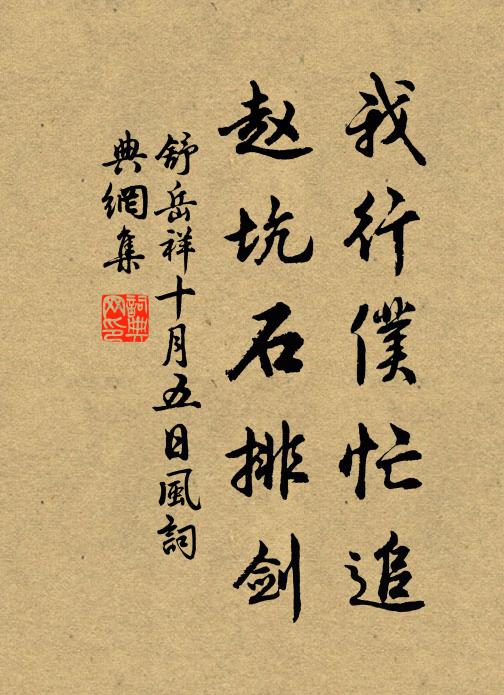 我行僕忙追
赵坑石排剑
舒岳祥十月五日風詞
典網集
詞典
网印